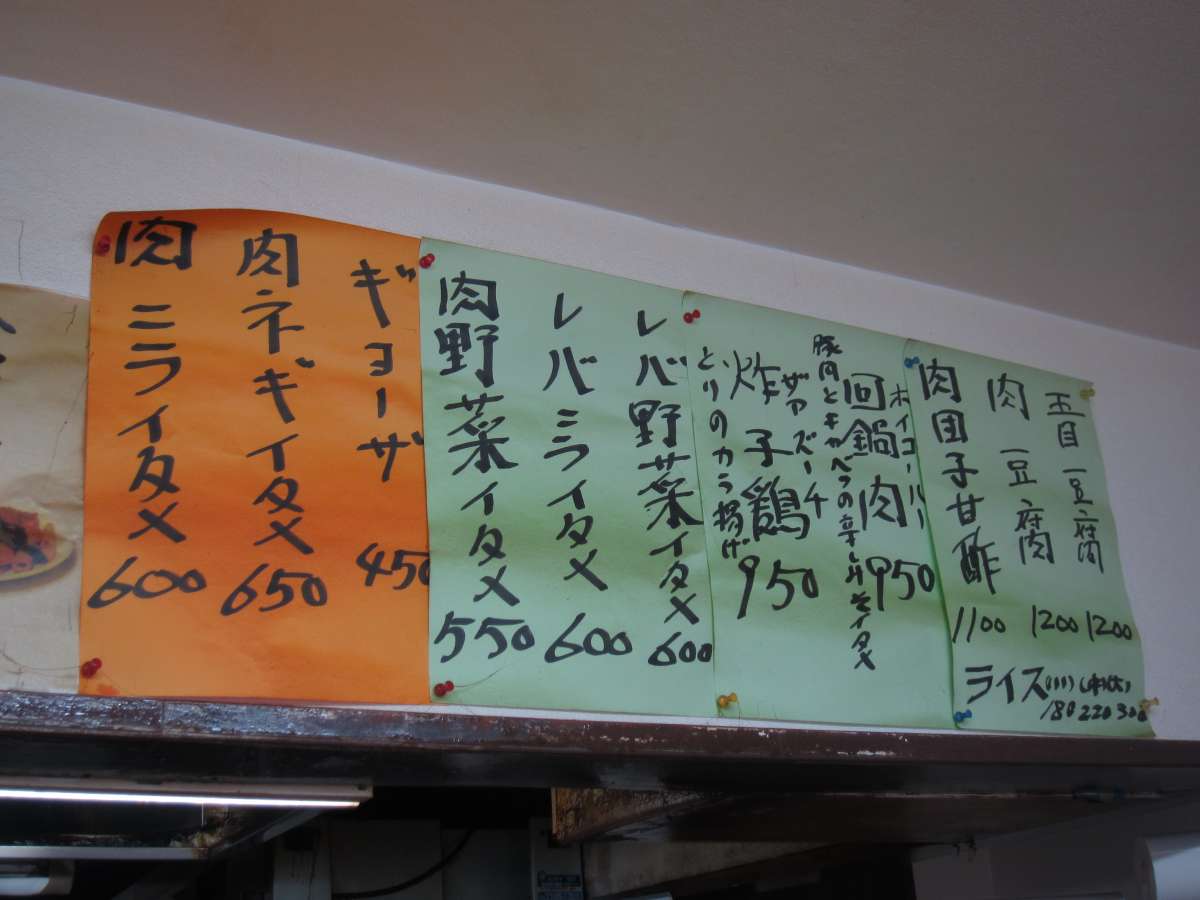 五目豆腐 1200
肉豆腐 1200
肉団子甘酢 1100
ライス(小)(中)(大)
180 220 300
ホイコーロー
回鍋肉 950
豚肉とキャベツの辛しみそイタメ
ザァズーチ
炸子鶏 950
とりのカラ揚げ
レバ野菜イタメ 600
レバニライタメ 600
肉野菜イタメ 550
ギョーザ 450
肉ネギイタメ 650
肉ニライタメ 600